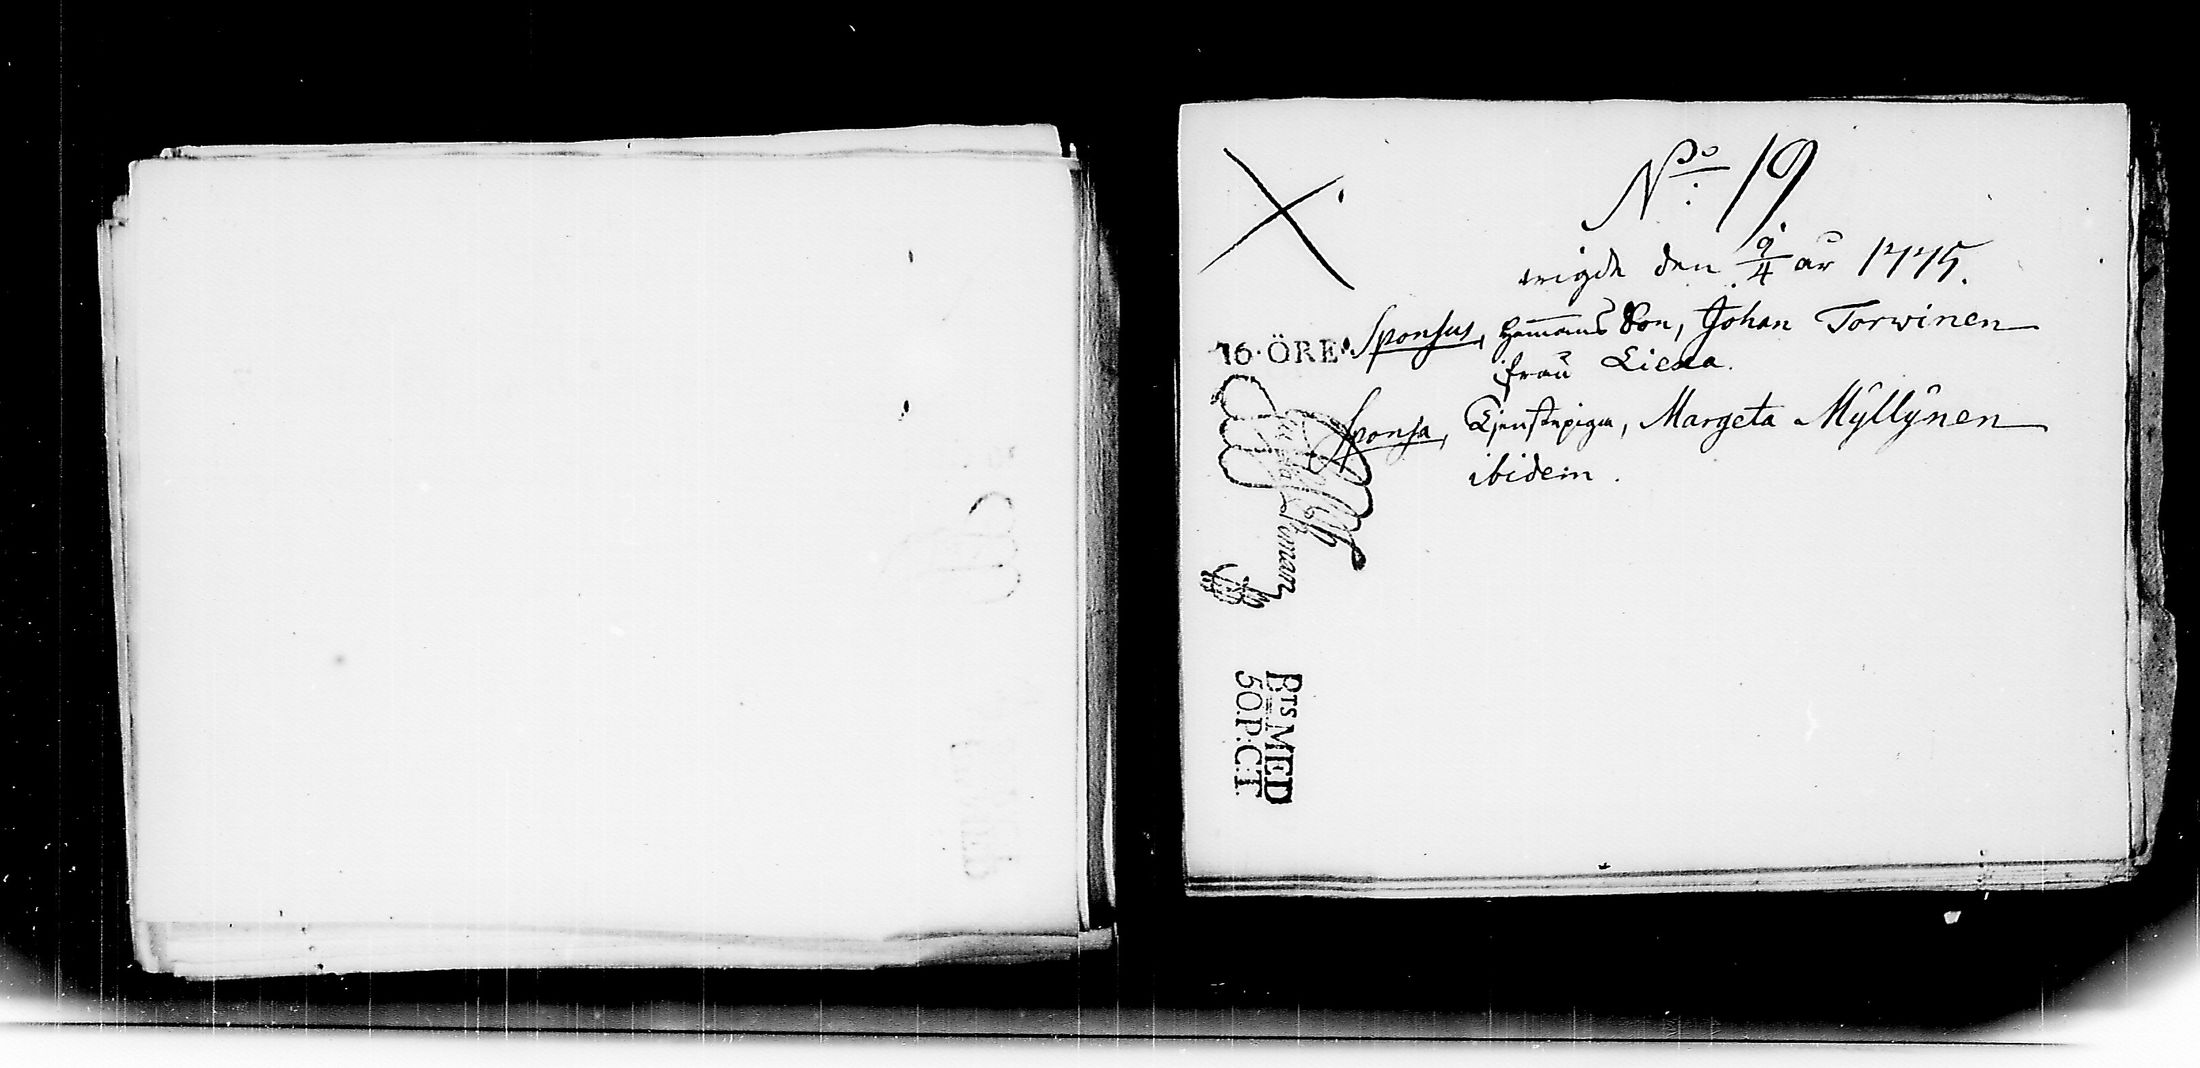 No 19
wigde den 9/4 år 1775.
16·ÖRE
Sponsus, Hemmans Son, Johan Torwinen
ifrån Liexa.
Sponsa, Tjenstepiga, Margeta Mÿllÿnen
ibidem.
BTS MED
50.P:C:T